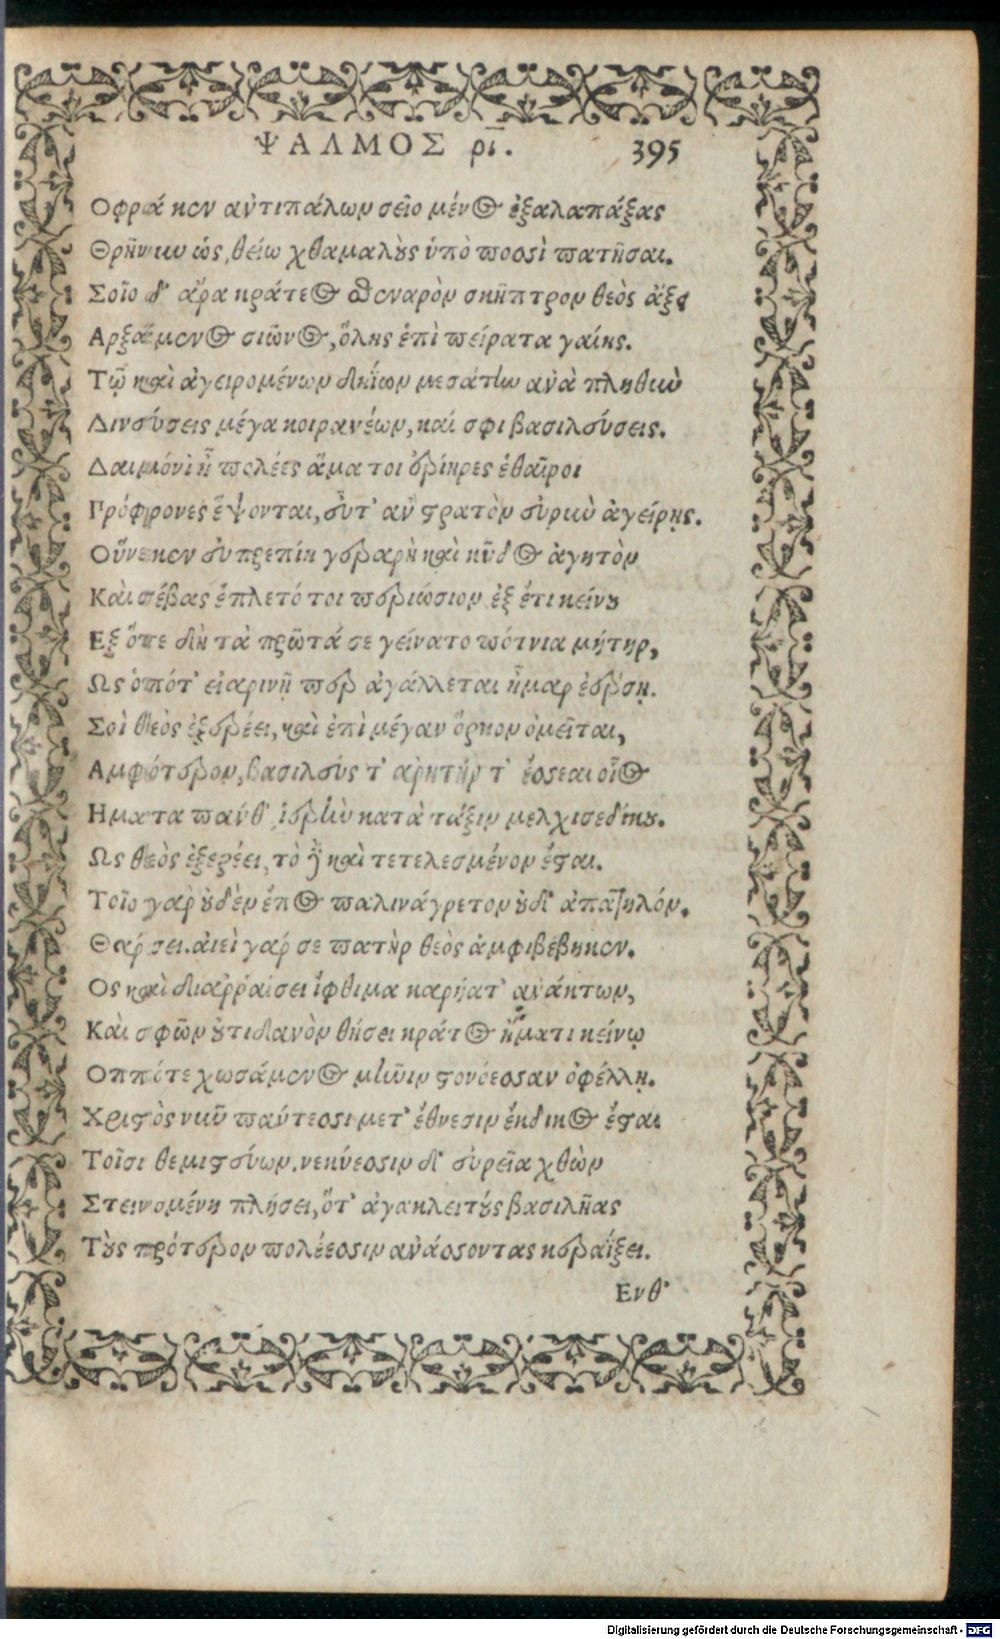 ΨΑΛΜΟΣ ρι. 395
Οφρά κεν ἀντιπάλων σεῖο μένος ἐξαλαπάξας
Θρῆνυν ὡς, θείω χθαμαλοὺς ὑπὸ ποσσὶ πατῆσαι.
Σοῖο δ' ἄρα κράτεος σθεναρὸν σκῆπτρον θεὸς ἄξει
Αρξάμενος σιῶνος, ὅλης ἐπὶ πείρατα γαίης.
Τῷ καὶ ἀγειρομένων δηΐων μεσάτην ἀνὰ πληθὺν
Δινεύσεις μέγα κοιρανέων, καί σφι βασιλεύσεις.
Δαιμόνι ἦ πολέες ἅμα τοι ἐρίηρες ἑταῖροι
Πρόφρονες ἕψονται, εὖτ' ἂν στρατὸν εὐρὺν ἀγείρῃς.
Οὕνεκεν εὐπρεπίη γεραρὴ καὶ κῦδος ἀγητὸν
Καὶ σέβας ἔπλετό τοι περιώσιον ἐξ ἔτι κείνου
Εξ ὅτε δὴ τὰ πρῶτά σε γείνατο πότνια μήτηρ,
Ως ὁπότ' εἰαρινῇ περ ἀγάλλεται ἦμαρ ἐέρσῃ.
Σοὶ θεὸς ἐξερέει, καὶ ἐπὶ μέγαν ὅρκον ὀμεῖται,
Αμφότερον, βασιλεύς τ' ἀρητήρ τ' ἔσσεαι οἶος
Ηματα πάνθ' ἱερὴν κατὰ τάξιν μελχισεδέκου.
Ως θεὸς ἐξερέει, τὸ δὲ καὶ τετελεσμένον ἔσται.
Τοῖο γὰρ οὐδὲν ἔπος παλινάγρετον οὐδ' ἀπατηλόν.
Θάρσει. αἰεὶ γάρ σε πατὴρ θεὸς ἀμφιβέβηκεν.
Ος καὶ διαρραίσει ἴφθιμα καρήατ' ἀνάκτων,
Καὶ σφῶν οὐτιδανὸν θήσει κράτος ἤματι κείνῳ
Οππότε χωσάμενος μῆνιν στονόεσσαν ὀφέλλῃ.
Χριστὸς νῦν πάντεσσι μετ' ἔθνεσιν ἔκδικος ἔσται
Τοῖσι θεμιστεύων, νεκύεσσιν δ' εὐρεῖα χθὼν
Στεινομένη πλήσει, ὅτ' ἀγακλειτοὺς βασιλῆας
Τοὺς πρότερον πολέεσσιν ἀνάσσοντας κεραΐξει.
Ενθ'
Digitalisierung gefördert durch die Deutsche Forschungsgemeinschaft - DFG